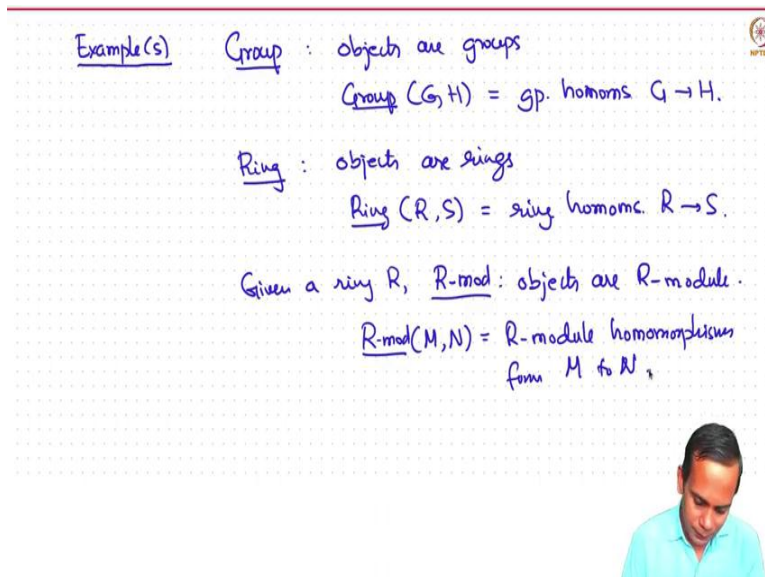 Example(s) Group : objects are groups
Group (G,H) = gp. homoms G → H.
Ring : objects are rings
Ring (R,S) = ring homoms. R → S.
Given a ring R, R-mod : objects are R-module.
R-mod(M,N) = R-module homomorphisms
form M to N.
NPTEL